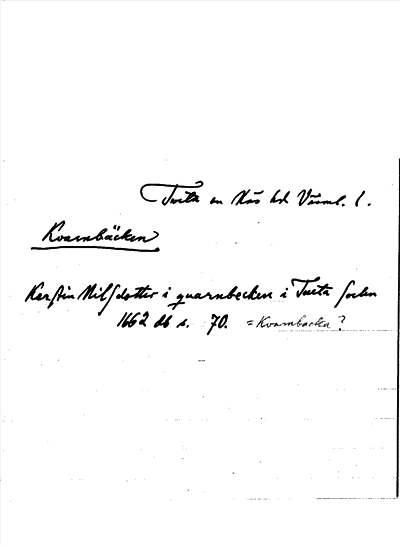 Tveta sn Näs hd Värml. l.
Kvarnbäcken
Kerstin Nilsdotter i quarnbecken i Tveta sochn
1662 db s. 70. = Kvarnbacka ?